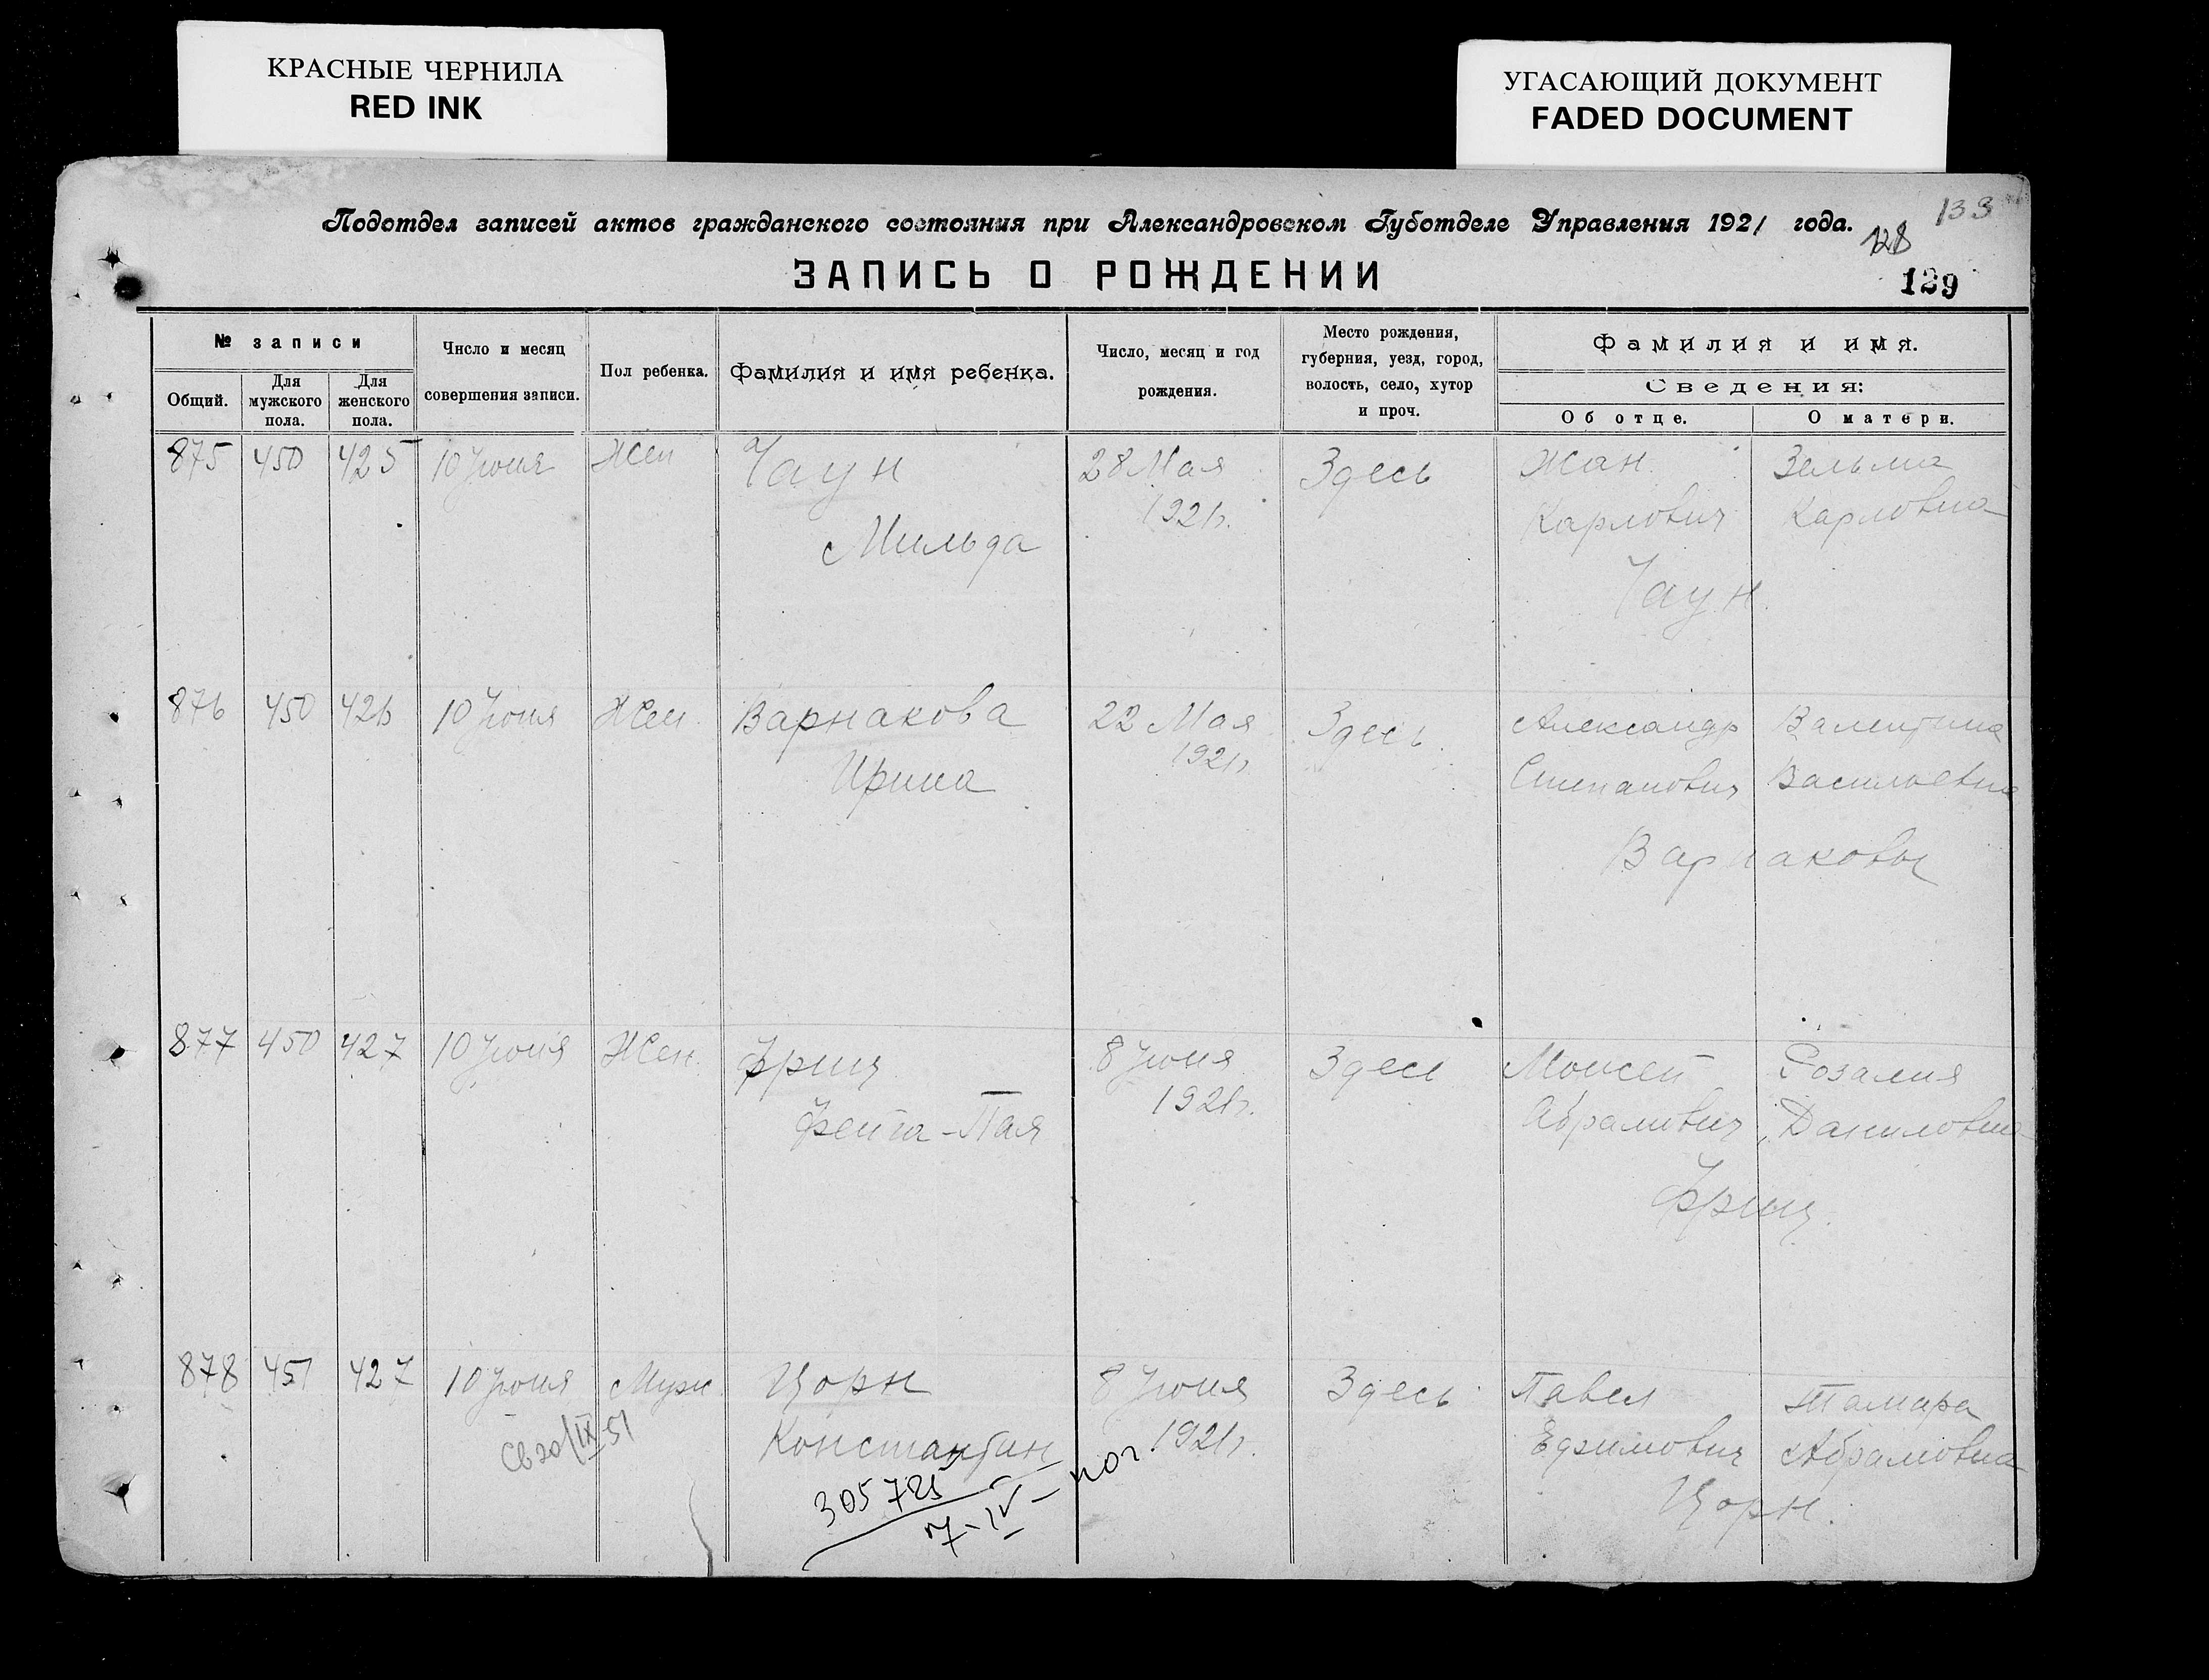 КРАСНЫЕ ЧЕРНИЛА
RED INK
УГАСАЮЩИЙ ДОКУМЕНТ
FADED DOCUMENT
133
Подотдел записей актов гражданского состояния при Александровском Губотделе Управления 1921 года.
128
ЗАПИСЬ О РОЖДЕНИИ
129
№ записи
Общий.
Для мужского пола.
Для женского пола.
Число и месяц совершения записи.
Пол ребенка.
Фамилия и имя ребенка.
Число, месяц и год рождения.
Место рождения, губерния, уезд, город, волость, село, хутор и проч.
Фамилия и имя.
Сведения:
Об отце.
О матери.
875 450 425 10 Июня Жен Чаун 28 Мая Здесь Жан Зельма
1921г. Карлович Карловна
Мильда
Чаун.
876 450 426 10 Июня Жен. Варнакова 22 Мая Здесь. Александр Валентина
1921г. Степанович Васильевна
Ирина
Варнаковы
877 450 427 10 Июня Жен. Фриц 8 Июня Здесь Моисей Розалия
Фейга-Пая 1921г. Абрамович Даниловна
Фриц.
878 451 427 10 Июня Муж Цорн 8 Июня Здесь Павел Тамара
Константин 1921г. Ефимович Абрамовна
Св 20/IX-51
Цорн.
7-IV-